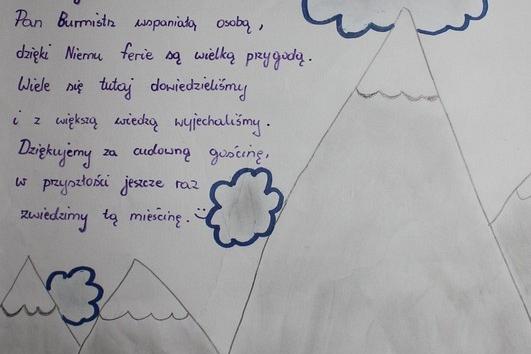 Pan Burmistrz wspaniałą osobą,
dzięki Niemu ferie są wielką przygodą.
Wiele się tutaj dowiedzieliśmy
i z większą wiedzą wyjechaliśmy.
Dziękujemy za cudowną gościnę,
w przyszłości jeszcze raz
zwiedzimy tą mieścinę. :)